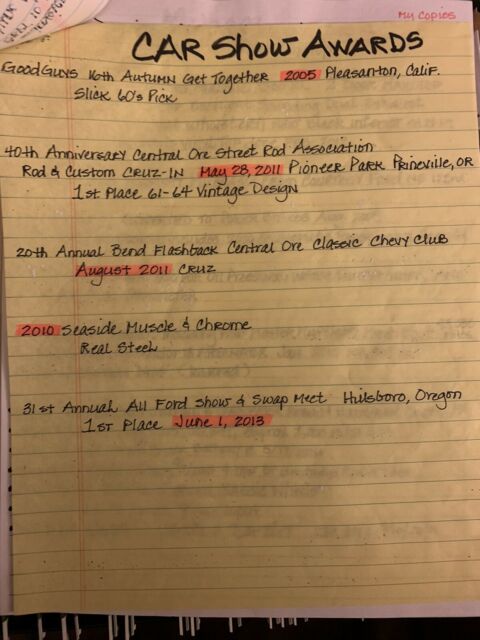 My Copies
CAR Show AWARDS
GoodGuys 16th Autumn Get Together 2005 Pleasanton, Calif.
Slick 60's Pick
40th Anniversary Central Ore Street Rod Association
Rod & Custom CRUZ-IN May 28, 2011 Pioneer Park Prineville, OR
1st Place 61-64 Vintage Design
20th Annual Bend Flashback Central Ore Classic Chevy Club
August 2011 CRUZ
2010 Seaside Muscle & Chrome
Real Steel
31st Annual All Ford Show & Swap Meet Hillsboro, Oregon
1st Place June 1, 2013